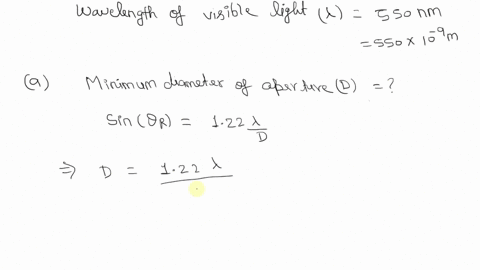 Wavelength of visible light (λ) = 550 nm
= 550 × 10⁻⁹ m
(a) Minimum diameter of aperture (D) = ?
Sin (θR) = 1.22 λ/D
⇒ D = 1.22 λ